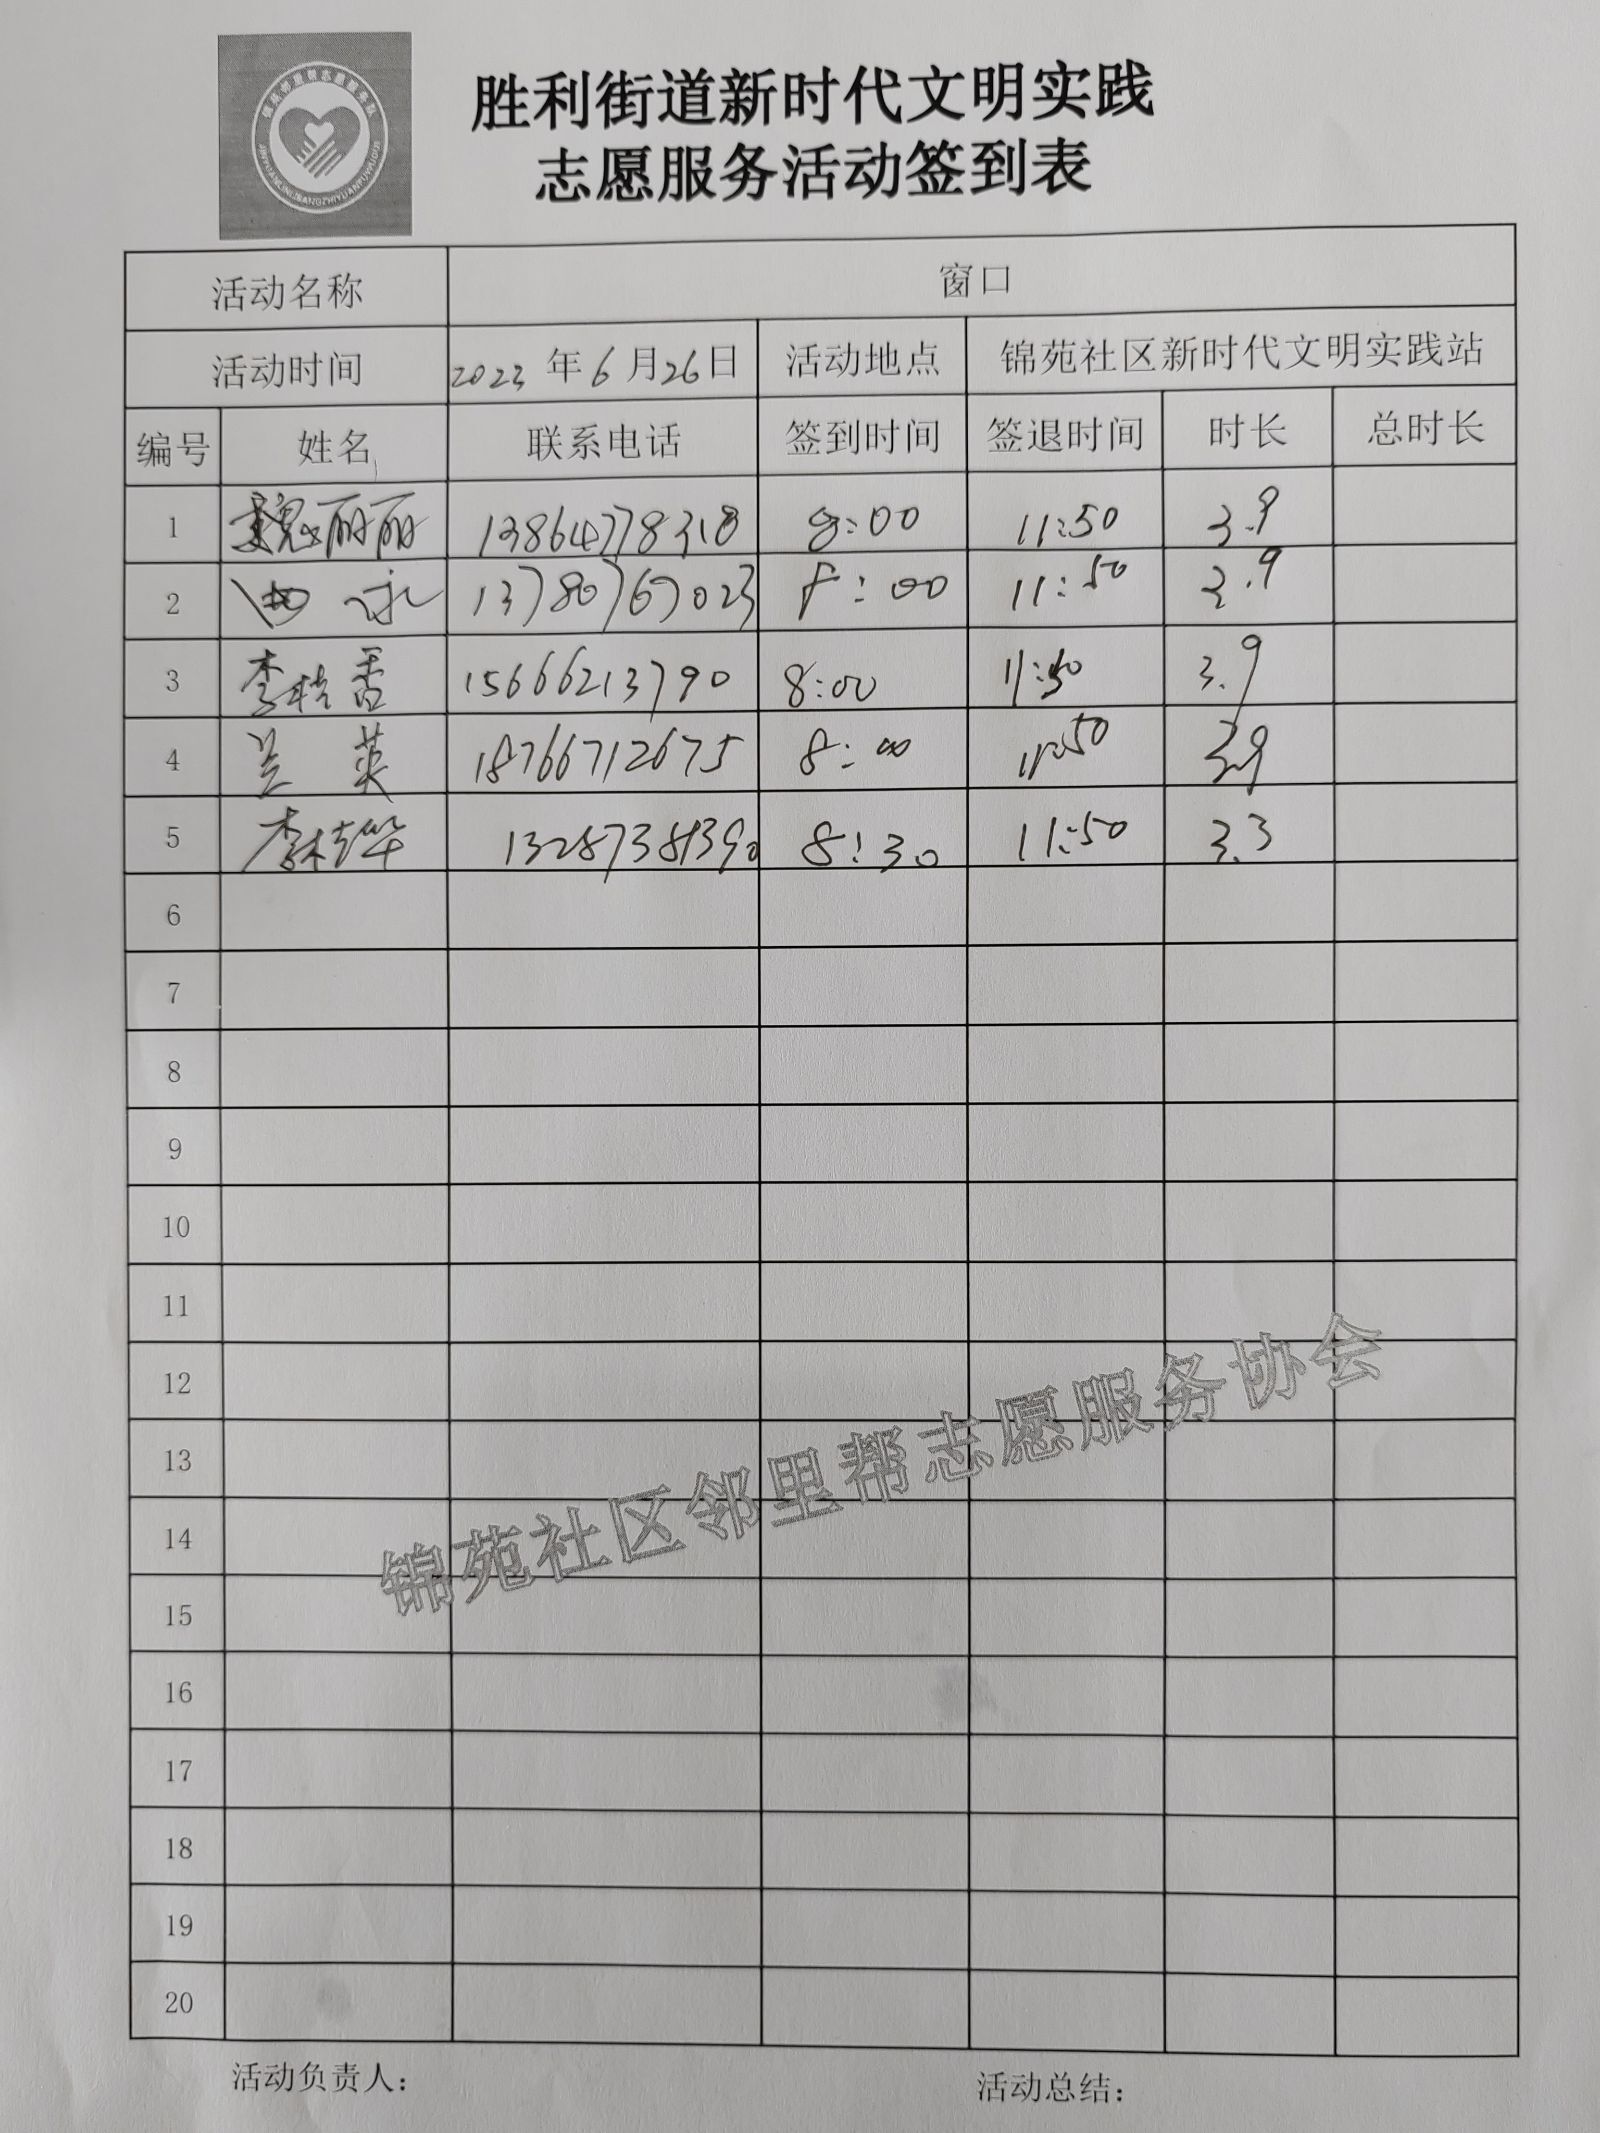 胜利街道新时代文明实践
志愿服务活动签到表
活动名称 窗口
活动时间 2023 年 6 月 26 日 活动地点 锦苑社区新时代文明实践站
编号 姓名 联系电话 签到时间 签退时间 时长 总时长
1 魏丽丽 13864778318 8:00 11:50 3.9
2 田永 13780767023 8:00 11:50 3.9
3 李桂香 15666213790 8:00 11:50 3.9
4 兰英 18766712675 8:00 11:50 3.9
5 李桂华 13287381390 8:30 11:50 3.3
6
7
8
9
10
11
12
13
14
15
16
17
18
19
20
锦苑社区邻里帮志愿服务协会
活动负责人: 活动总结: